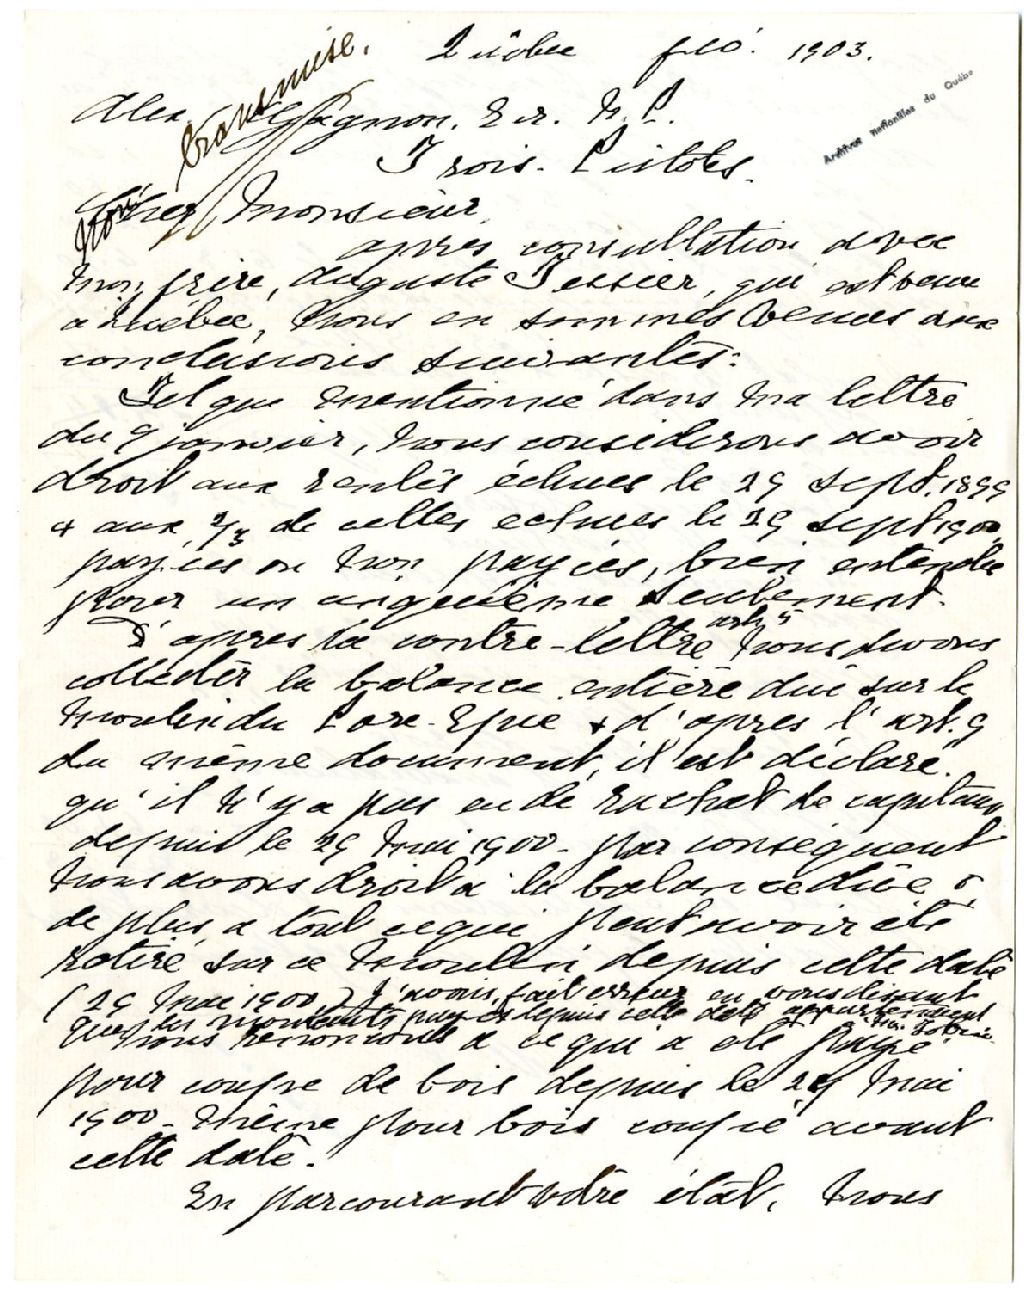 Québec fév. 1903.
Non transmise.
Archives Nationales du Québec
Alex. Gagnon, Er. N.P.
Trois-Pistoles.
Cher Monsieur,
après consultation avec
mon frère, Auguste Tessier, qui est venu
à Québec, nous en sommes venus aux
conclusions suivantes:
Tel que mentionné dans ma lettre
du 9 janvier, nous considérons avoir
droit aux rentes échues le 29 sept. 1899
& aux 2/3 de celles échues le 29 sept 1900
payées ou non payées, bien entendu
pour un cinquième seulement.
D'après la contre-lettre, nous avons
collecter la balance entière due sur le
moulin du Porc-Epic & d'après l'art. 9
du même document, il est déclaré
qu'il n'y a pas eu de rachat de capitaux
depuis le 29 mai 1900 - par conséquent
nous avons droit à la balance due &
de plus à tout ce qui peut avoir été
retiré sur ce moulin depuis cette date
(29 mai 1900) J'avais fait erreur en vous disant
que les montants payés depuis cette date appartenaient
nous renonçons à ce qui a été payé
pour coupe de bois depuis le 29 mai
1900 - même pour bois coupé avant
cette date.
En parcourant votre état, nous